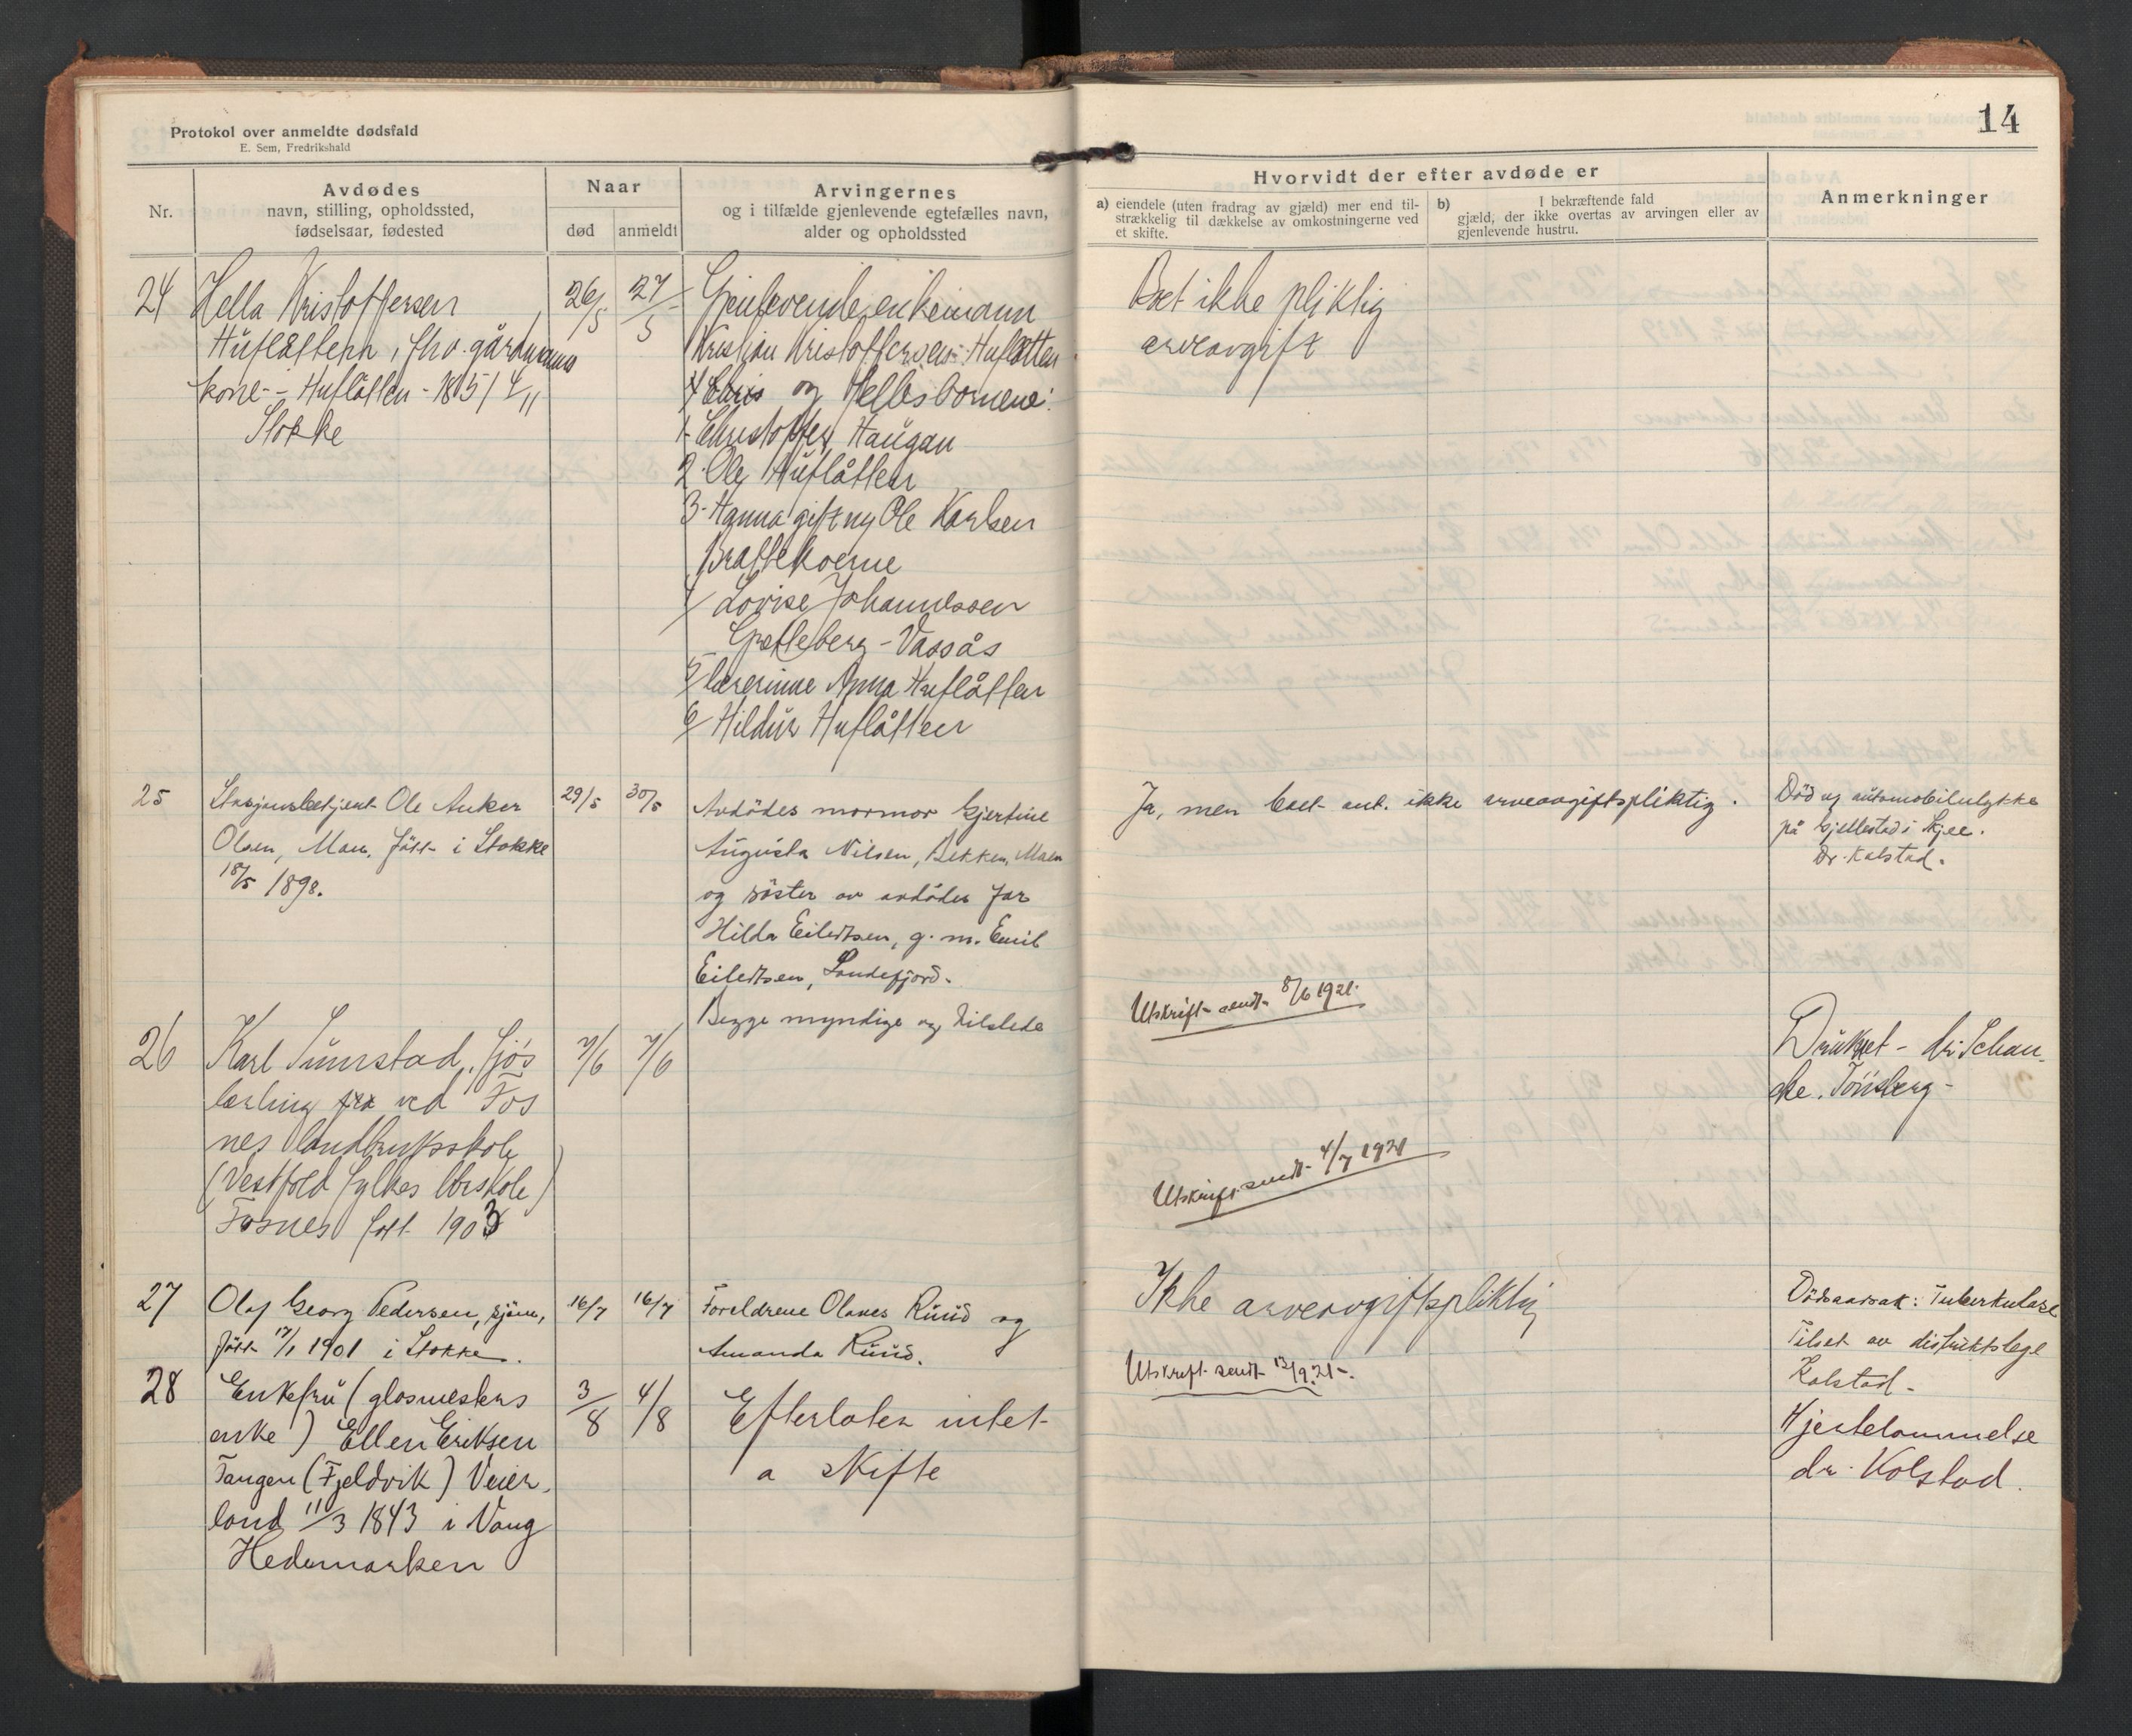 Protokol over anmeldte dødsfald
E. Sem, Fredrikshald
Nr.
Avdødes
navn, stilling, opholdssted,
fødselsaar, fødested
Naar
død
anmeldt
Arvingernes
og i tilfælde gjenlevende egtefælles navn,
alder og opholdssted
24
Hella Kristoffersen
Huflåtten, fhv. gårdmanns
kone - Huflåtten - 1815 4/11
Stokke
26/5
27/5
Gjenlevende enkemann
Kristian Kristoffersen Huflåtten
og Helles bornene:
1- Christoffer Haugan
2. Ole Huflåtten
3- Hanna gift m Ole Karlsen
Brattekverne
4/ Lovise Johannessen
Grætteberg - Vassås
5/ lærerinne Anna Huflåtten
6/ Hildur Huflåtten
25
Stasjonsbetjent Ole Anker
Olsen, Moen. Født i Stokke
18/5 1898.
29/5
30/5
Avdødes mormor Gjertine
Augusta Nilsen, Bekken, Moen
og söster av avdödes far
Hilda Eilertsen, g. m. Emil
Eilertsen, Sandefjord.
Begge myndige og tilstede
26
Karl Sunnstad, sjö
lærling fra ved Fos
nes landbruksskole
(Vestfold fylkes
Fosnes født 1903
7/6
7/6
27
Olaf Georg Pedersen, sjöm,
født 17/1 1901 i Stokke.
16/7
16/7
Foreldrene Olaves Ruud og
Amanda Ruud.
28
Enkefru (glasmesters
enke) Ellen Eriksen
Tangen (Fjeldvik) Veier-
land 11/3 1843 i Vang
Hedemarken
3/8
4/8
Efterlater intet
a skifte
14
Hvorvidt der efter avdøde er
a) eiendele (uten fradrag av gjæld) mer end til-
strækkelig til dækkelse av omkostningerne ved
et skifte.
b) I bekræftende fald
gjæld, der ikke overtas av arvingen eller av
gjenlevende hustru.
Anmerkninger
Boet ikke pliktig
arveavgift
Ja, men boet ant. ikke arveavgiftspliktig.
Död av automobilulykke
på Gjellestad i Skjee.
Dr. Kolstad.
Utskrift sendt 8/6 1921.
Druknet - dr. Schan-
cke. Tönsberg -
Utskrift sendt 4/7 1921
Ikke arveavgiftspliktig
Dödsaarsak: Tuberkulose
Tilset av distriktslege
Kolstad -
Utskrift sendt 13/9.21-.
Hjertelammelse
dr. Kolstad.